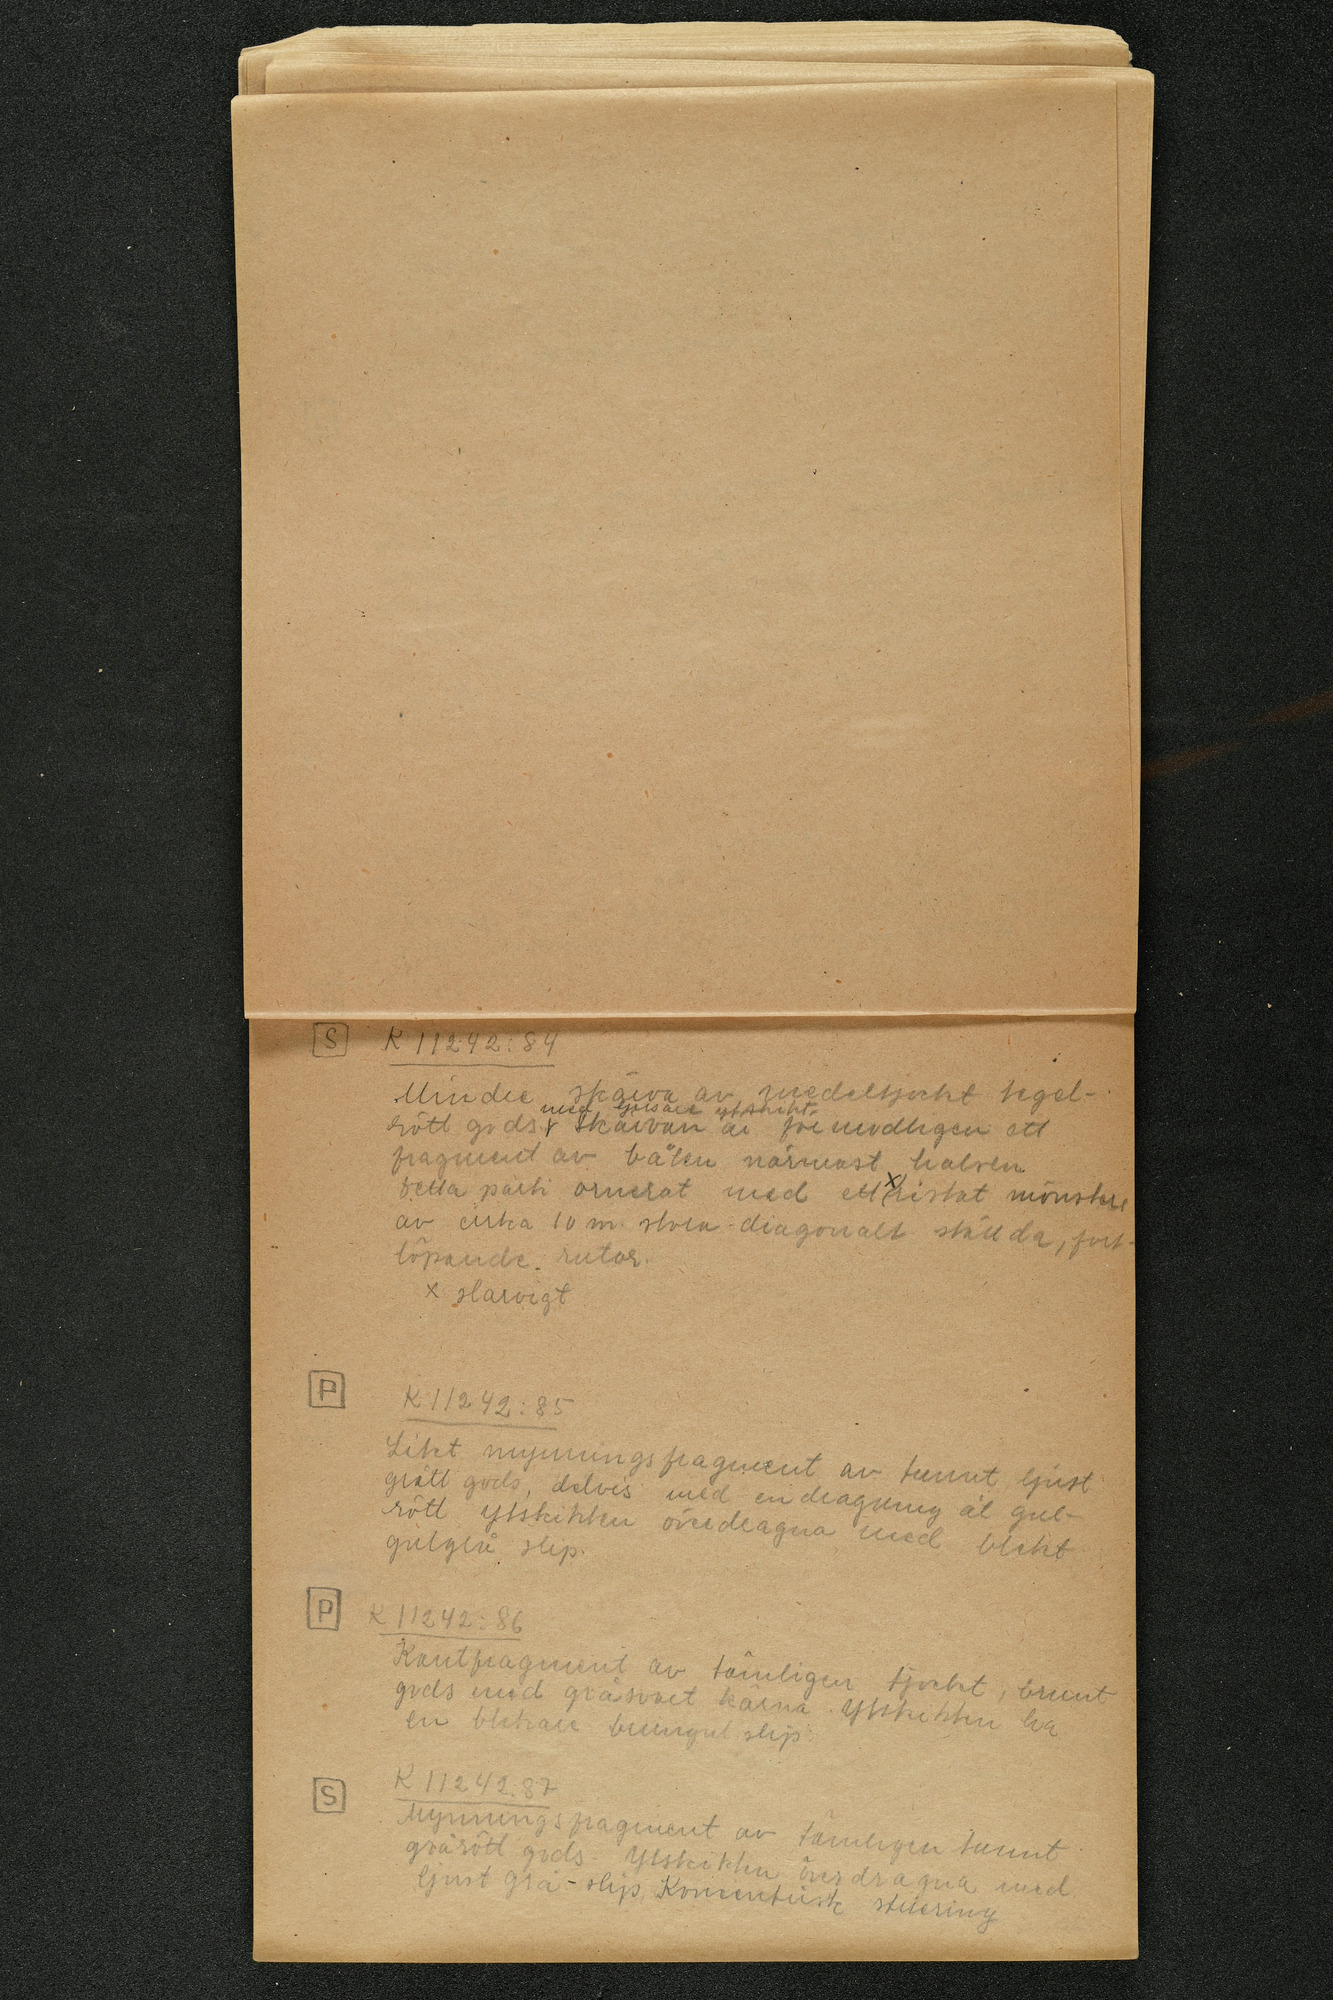 S K 11242:84
Mindre skärva av medeltjockt tegel-
med ljusare ytskikt.
rött gods. Skärvan är förmodligen ett
fragment av bålen närmast halsen
Detta parti ornerat med ett x ristat mönster
av cirka 10 m. stora diagonalt ställda, fort-
löpande rutor.
x slarvigt
P K 11242:85
Litet mynningsfragment av tunnt ljust
grått gods, delvis med en dragning åt gul-
rött ytskikten överdragna med blekt
gulgrå slip.
P K 11242:86
Kantfragment av tämligen tjockt, brunt
gods med gråsvart kärna. Ytskikten ha
en blekare brungul slip.
S K 11242.87
Mynningsfragment av tämligen tunnt
grårött gods. Ytskikten överdragna med
ljust grå-slip. Koncentrisk striering